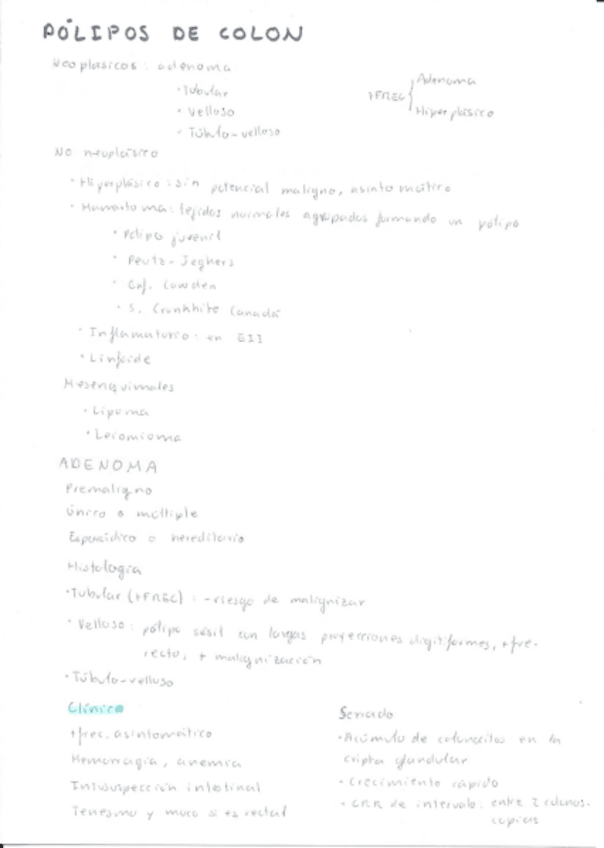 PÓLIPOS DE COLON
Neoplásicos: adenoma
· Tubular
· Velloso
· Túbulo-velloso
+FREC { Adenoma
Hiperplásico
No neoplásico
· Hiperplásico: sin potencial maligno, asintomático
· Hamartoma: tejidos normales agrupados formando un pólipo
· Pólipo juvenil
· Peutz-Jeghers
· Enf. Cowden
· S. Cronkhite Canadá
· Inflamatorio: en EII
· Linfoide
Mesenquimales
· Lipoma
· Leiomioma
ADENOMA
Premaligno
Único o múltiple
Esporádico o hereditario
Histología
· Tubular (+FREC): - riesgo de malignizar
· Velloso: pólipo sésil con largas proyecciones digitiformes, + fre.
recto, + malignización
· Túbulo-velloso
Clínica
+ frec. asintomático
Hemorragia, anemia
Intususpección intestinal
Tenesmo y moco si es rectal
Serrado
· Acúmulo de colonocitos en la
cripta glandular
· Crecimiento rápido
· CRR de intervalo: entre 2 colonos-
copias